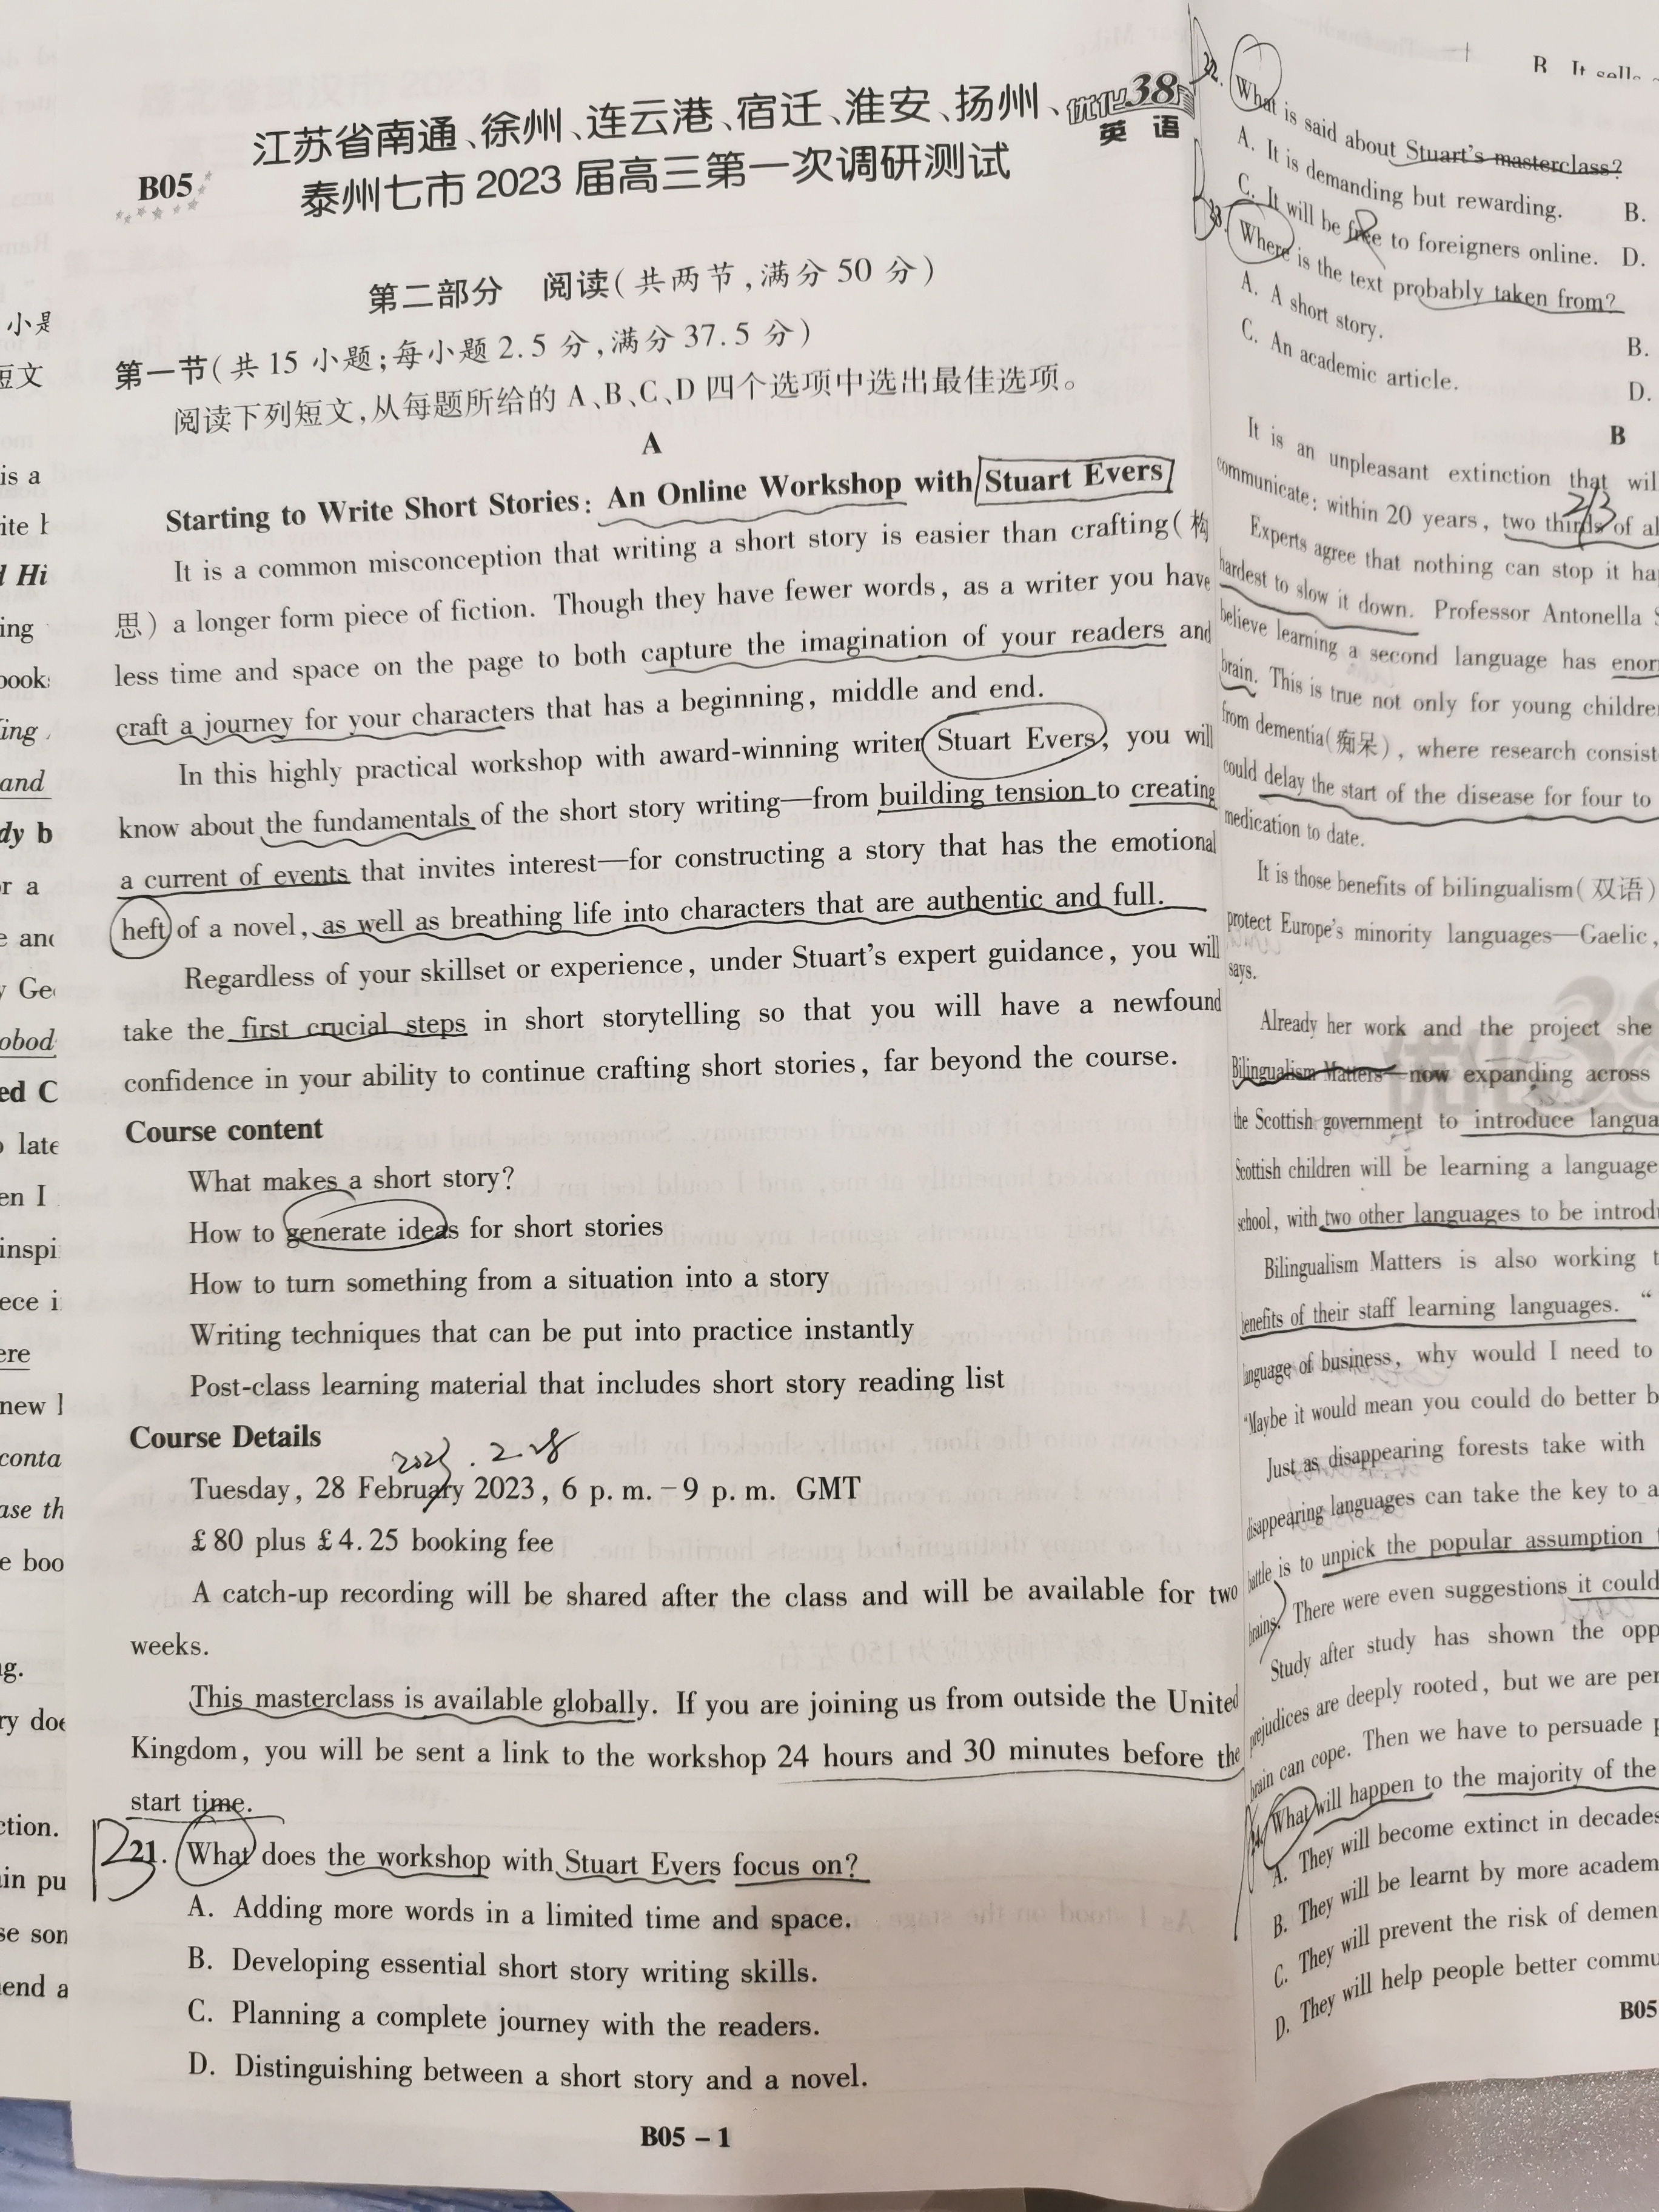 江苏省南通、徐州、连云港、宿迁、淮安、扬州、
泰州七市2023届高三第一次调研测试
B05
优化38套
英 语
第二部分 阅读(共两节,满分50分)
第一节(共15小题;每小题2.5分,满分37.5分)
阅读下列短文,从每题所给的A、B、C、D四个选项中选出最佳选项。
A
Starting to Write Short Stories: An Online Workshop with Stuart Evers
It is a common misconception that writing a short story is easier than crafting(构
思) a longer form piece of fiction. Though they have fewer words, as a writer you have
less time and space on the page to both capture the imagination of your readers and
craft a journey for your characters that has a beginning, middle and end.
In this highly practical workshop with award-winning writer Stuart Evers, you will
know about the fundamentals of the short story writing—from building tension to creating
a current of events that invites interest—for constructing a story that has the emotional
heft of a novel, as well as breathing life into characters that are authentic and full.
Regardless of your skillset or experience, under Stuart's expert guidance, you will
take the first crucial steps in short storytelling so that you will have a newfound
confidence in your ability to continue crafting short stories, far beyond the course.
Course content
What makes a short story?
How to generate ideas for short stories
How to turn something from a situation into a story
Writing techniques that can be put into practice instantly
Post-class learning material that includes short story reading list
Course Details
2023.2.28
Tuesday, 28 February 2023, 6 p. m. -9 p. m. GMT
£80 plus £4.25 booking fee
A catch-up recording will be shared after the class and will be available for two
weeks.
This masterclass is available globally. If you are joining us from outside the United
Kingdom, you will be sent a link to the workshop 24 hours and 30 minutes before the
start time.
B 21. What does the workshop with Stuart Evers focus on?
A. Adding more words in a limited time and space.
B. Developing essential short story writing skills.
C. Planning a complete journey with the readers.
D. Distinguishing between a short story and a novel.
B05 - 1
22. What is said about Stuart's masterclass?
A. It is demanding but rewarding. B.
C. It will be free to foreigners online. D.
23. Where is the text probably taken from?
A. A short story. B.
C. An academic article. D.
B
It is an unpleasant extinction that wil
communicate: within 20 years, two thirds of al
2/3
Experts agree that nothing can stop it ha
hardest to slow it down. Professor Antonella S
believe learning a second language has enor
brain. This is true not only for young childre
from dementia(痴呆), where research consist
could delay the start of the disease for four to
medication to date.
It is those benefits of bilingualism(双语)
protect Europe's minority languages—Gaelic,
says.
Already her work and the project she
Bilingualism Matters—now expanding across
the Scottish government to introduce langua
Scottish children will be learning a language
school, with two other languages to be introdu
Bilingualism Matters is also working t
benefits of their staff learning languages. “
language of business, why would I need to
“Maybe it would mean you could do better b
Just as disappearing forests take with
disappearing languages can take the key to a
battle is to unpick the popular assumption t
brains. There were even suggestions it could
Study after study has shown the opp
prejudices are deeply rooted, but we are per
brain can cope. Then we have to persuade p
What will happen to the majority of the
A. They will become extinct in decades
B. They will be learnt by more academ
C. They will prevent the risk of demen
D. They will help people better commu
B05